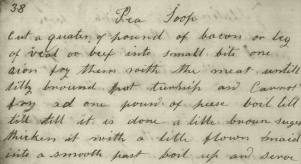 38
Pea Soop
Cut a quater of pound of bacon or leg
of veal or beef into small bits one
oion fry them with the meat untill
tilly brownd put turnip and Carrot
fry ad one pound of pese boil till
till still it is done a litle brown suger
thicken it with a litle flower maid
into a smooth past boil up and serve